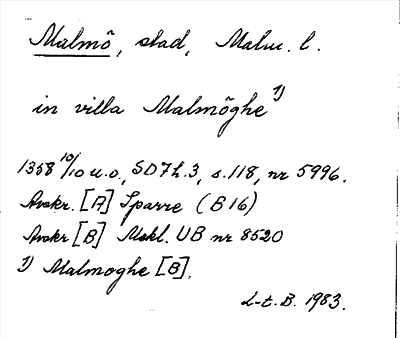 Malmö, stad, Malm. l.
in villa Malmöghe 1)
1358 10/10 u.o., SD 7 h. 3, s. 118, nr 5996.
Avskr. [A] Sparre (B 16)
Avskr [B] Mskl. UB nr 8520
1) Malmoghe [B].
L-t. B. 1983.